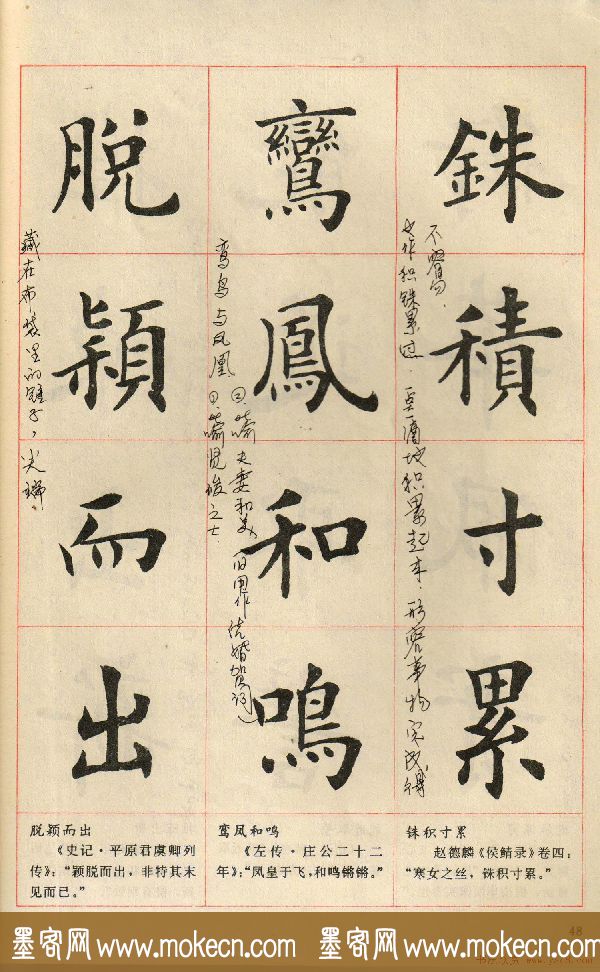 銖積寸累
鸞鳳和鳴
脫穎而出
不容易、
鸾鸟与凤凰
②喻夫妻和美(旧用作结婚贺词)
①喻贤俊之士
藏在布袋里的锥子,尖端、
铢积寸累
赵德麟《侯鲭录》卷四:
“寒女之丝,铢积寸累。”
鸾凤和鸣
《左传·庄公二十二
年》:“凤皇于飞,和鸣锵锵。”
脱颖而出
《史记·平原君虞卿列
传》:“颖脱而出,非特其末
见而已。”
48
墨客网 www.mokecn.com 墨客网 www.mokecn.com